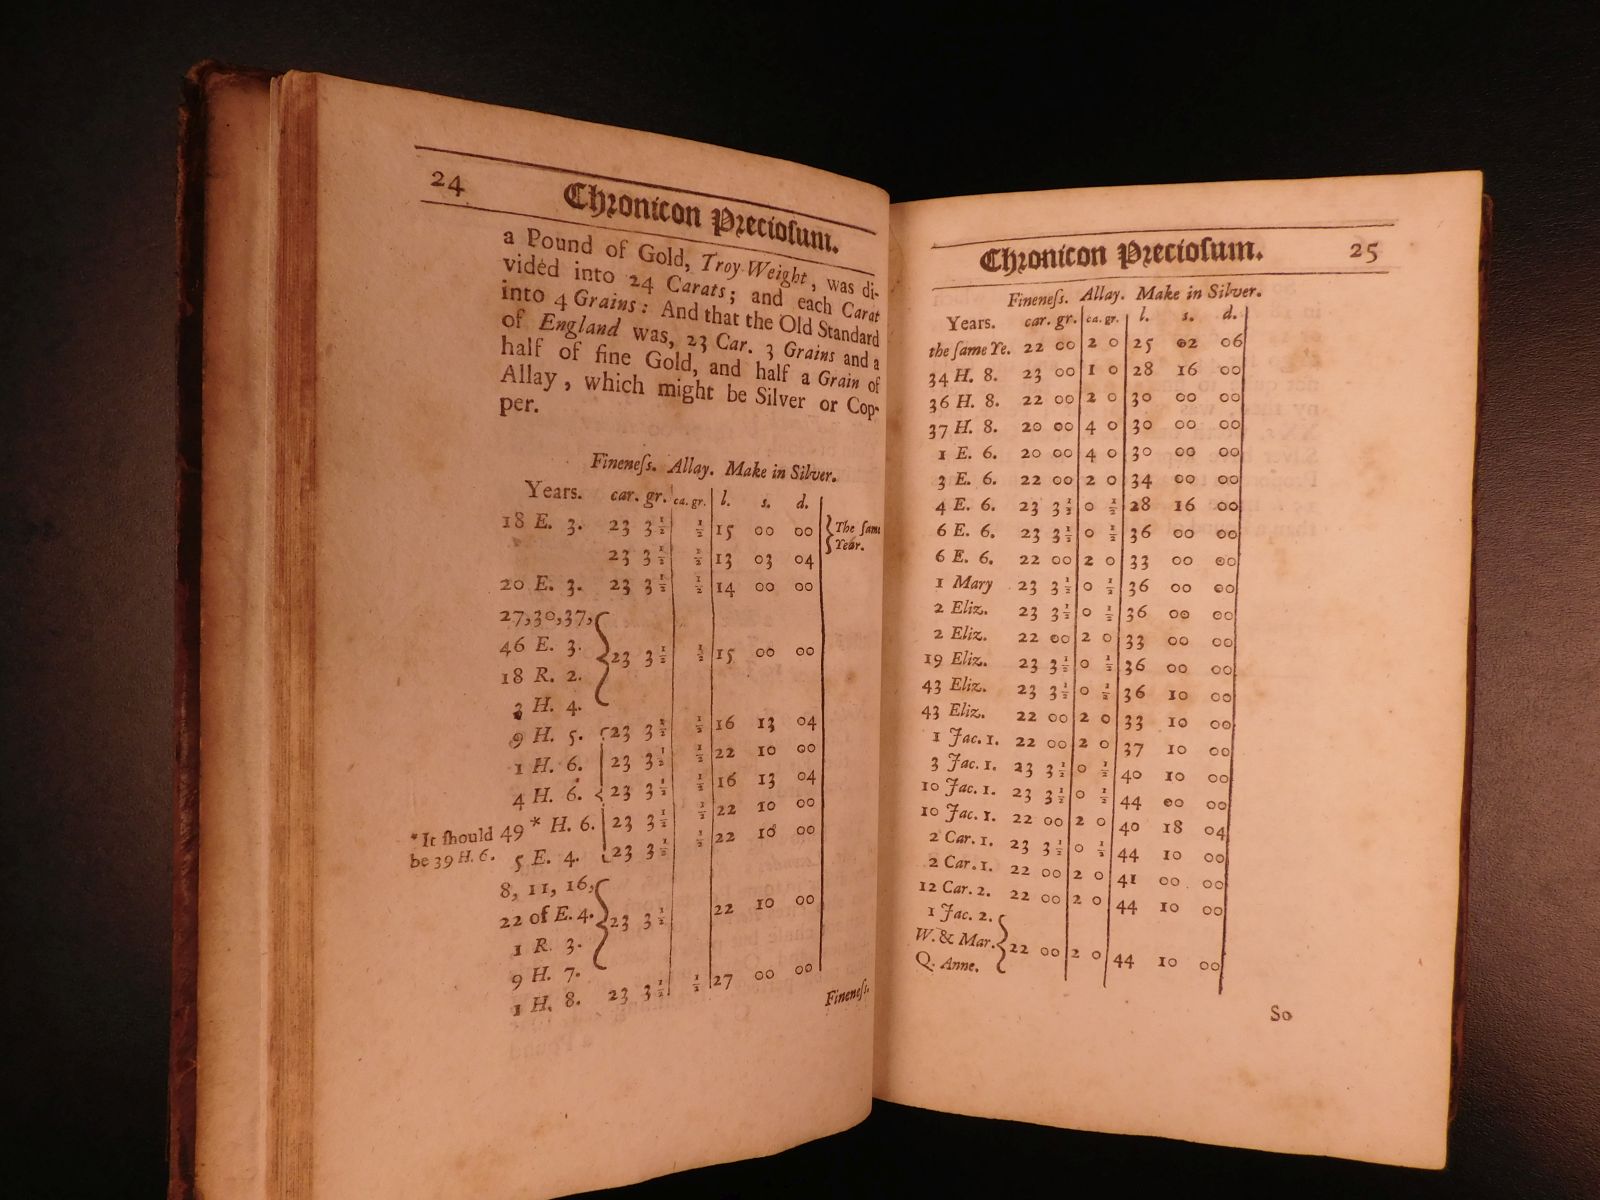 24
Chronicon Preciosum.
a Pound of Gold, Troy Weight, was di-
vided into 24 Carats; and each Carat
into 4 Grains: And that the Old Standard
of England was, 23 Car. 3 Grains and a
half of fine Gold, and half a Grain of
Allay, which might be Silver or Cop-
per.
Fineneſs. Allay. Make in Silver.
Years. car. gr. ca. gr. l. s. d.
18 E. 3. 23 3½ ½ 15 00 00 {The ſame
23 3½ ½ 13 03 04 Year.
20 E. 3. 23 3½ ½ 14 00 00
27,30,37,
46 E. 3. 23 3½ ½ 15 00 00
18 R. 2.
3 H. 4.
9 H. 5. 23 3½ ½ 16 13 04
1 H. 6. 23 3½ ½ 22 10 00
4 H. 6. 23 3½ ½ 16 13 04
*It ſhould 49* H. 6. 23 3½ ½ 22 10 00
be 39 H. 6. 5 E. 4. 23 3½ ½ 22 10 00
8, 11, 16,
22 of E. 4. 23 3½ 22 10 00
1 R. 3.
9 H. 7.
1 H. 8. 23 3½ ½ 27 00 00
Fineneſs.
Chronicon Preciosum. 25
Fineneſs. Allay. Make in Silver.
Years. car. gr. ca. gr. l. s. d.
the ſame Ye. 22 00 2 0 25 02 06
34 H. 8. 23 00 1 0 28 16 00
36 H. 8. 22 00 2 0 30 00 00
37 H. 8. 20 00 4 0 30 00 00
1 E. 6. 20 00 4 0 30 00 00
3 E. 6. 22 00 2 0 34 00 00
4 E. 6. 23 3½ 0 ½ 28 16 00
6 E. 6. 23 3½ 0 ½ 36 00 00
6 E. 6. 22 00 2 0 33 00 00
1 Mary 23 3½ 0 ½ 36 00 00
2 Eliz. 23 3½ 0 ½ 36 00 00
2 Eliz. 22 00 2 0 33 00 00
19 Eliz. 23 3½ 0 ½ 36 00 00
43 Eliz. 23 3½ 0 ½ 36 10 00
43 Eliz. 22 00 2 0 33 10 00
1 Jac. 1. 22 00 2 0 37 10 00
3 Jac. 1. 23 3½ 0 ½ 40 10 00
10 Jac. 1. 23 3½ 0 ½ 44 00 00
10 Jac. 1. 22 00 2 0 40 18 04
2 Car. 1. 23 3½ 0 ½ 44 10 00
2 Car. 1. 22 00 2 0 41 00 00
12 Car. 2. 22 00 2 0 44 10 00
1 Jac. 2.
W. & Mar. 22 00 2 0 44 10 00
Q. Anne.
So